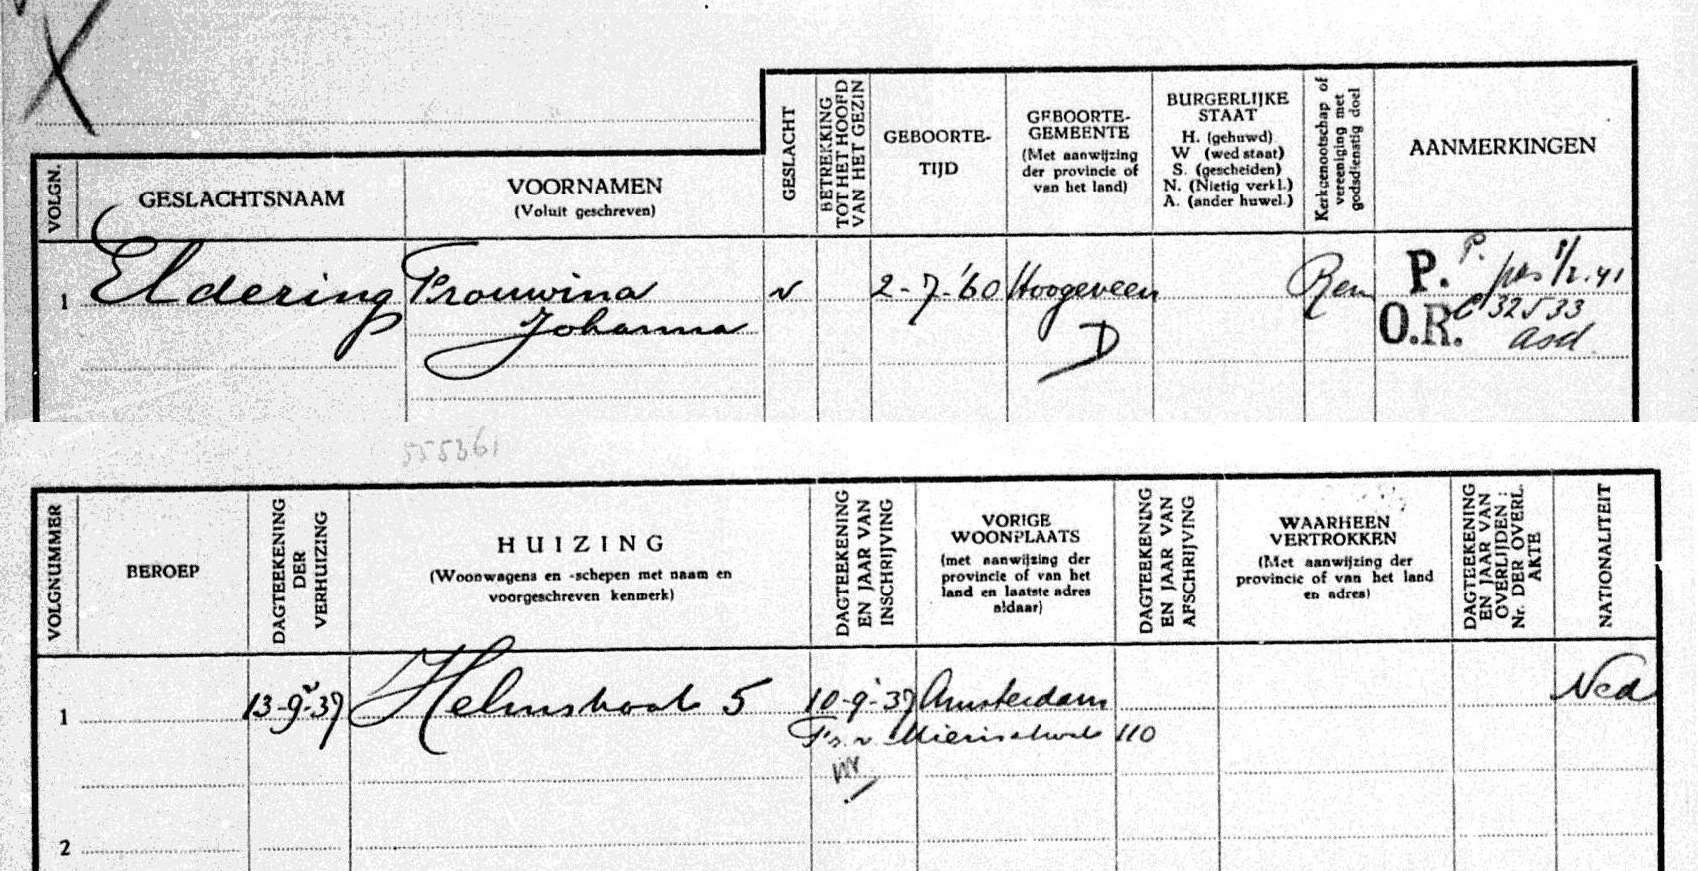 VOLGN.
GESLACHTSNAAM
VOORNAMEN
(Voluit geschreven)
GESLACHT
BETREKKING
TOT HET HOOFD
VAN HET GEZIN
GEBOORTE-
TIJD
GEBOORTE-
GEMEENTE
(Met aanwijzing
der provincie of
van het land)
BURGERLIJKE
STAAT
H. (gehuwd)
W (wed staat)
S. (gescheiden)
N. (Nietig verkl.)
A. (ander huwel.)
Kerkgenootschap of
vereeniging met
godsdienstig doel
AANMERKINGEN
1 Eldering Frouwina v 2-7-'60 Hoogeveen Rem P. P.
Johanna D O.R. C 32533
asd.
555361
VOLGNUMMER
BEROEP
DAGTEEKENING
DER
VERHUIZING
HUIZING
(Woonwagens en -schepen met naam en
voorgeschreven kenmerk)
DAGTEEKENING
EN JAAR VAN
INSCHRIJVING
VORIGE
WOONPLAATS
(met aanwijzing der
provincie of van het
land en laatste adres
aldaar)
DAGTEEKENING
EN JAAR VAN
AFSCHRIJVING
WAARHEEN
VERTROKKEN
(Met aanwijzing der
provincie of van het land
en adres)
DAGTEEKENING
EN JAAR VAN
OVERLIJDEN;
Nr. DER OVERL.
AKTE
NATIONALITEIT
1 13-9-37 5 10-9-37 Amsterdam Ned
Fr. v 110
2